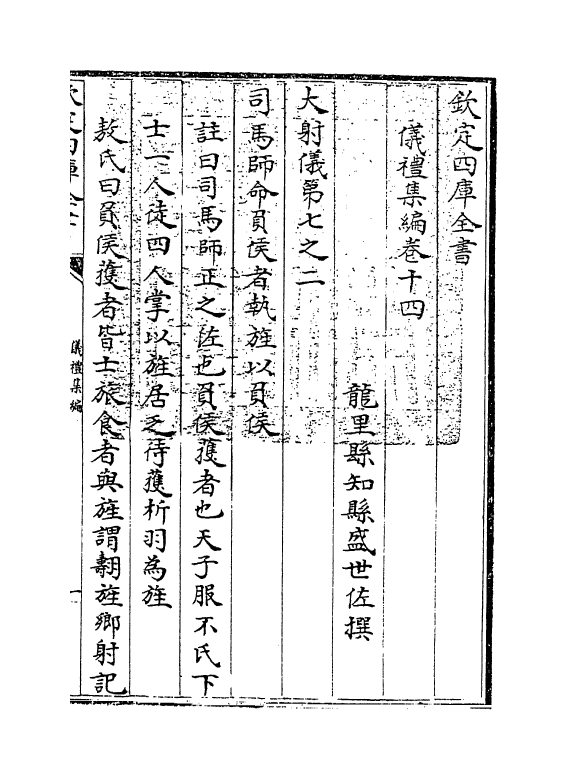 欽定四庫全書
儀禮集編卷十四
龍里縣知縣盛世佐撰
大射儀第七之二
司馬師命負侯者執旌以負侯
註曰司馬師正之佐也負侯獲者也天子服不氏下
士一人徒四人掌以旌居乏待獲析羽為旌
敖氏曰負侯獲者皆士旅食者與旌謂翿旌鄉射記
欽定四庫全書
儀禮集編
一